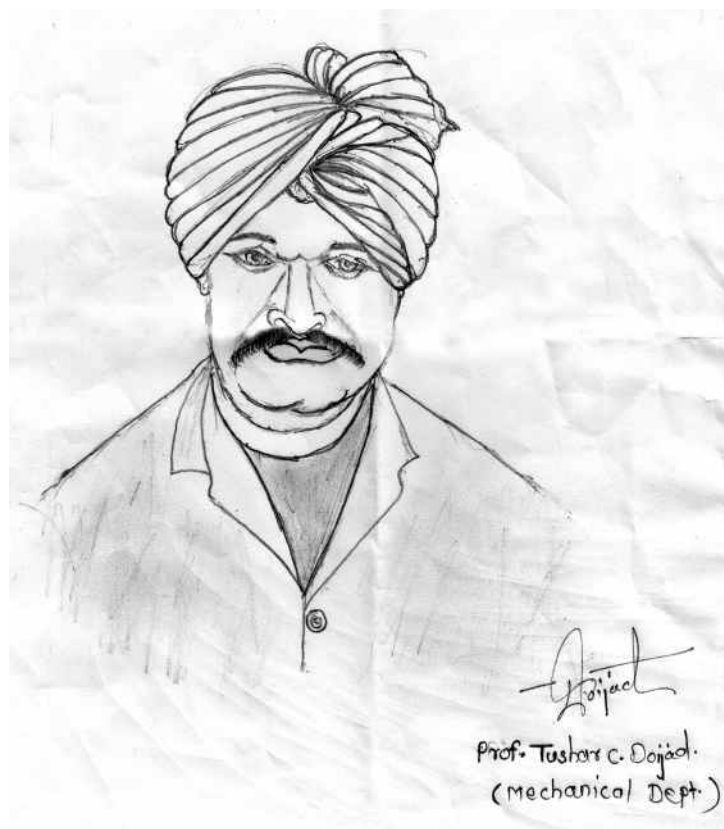 Doijad
Prof. Tushar C. Doijad.
(Mechanical Dept.)